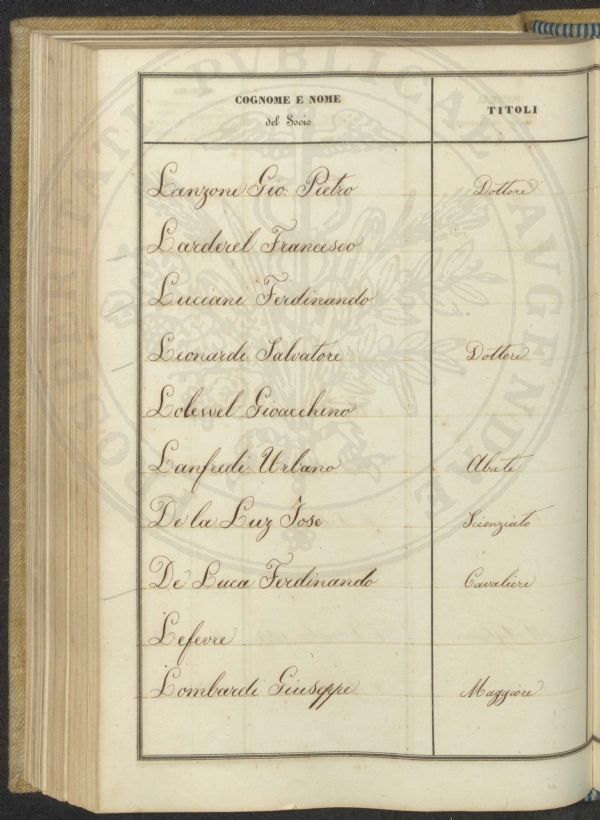 COGNOME E NOME
del Socio
TITOLI
Lanzoni Gio: Pietro Dottore
Larderel Francesco
Luciani Ferdinando
Leonardi Salvatore Dottore
Lolewel Gioacchino
Lanfredi Urbano Abate
De la Luz Jose Scienziato
De Luca Ferdinando Cavaliere
Lefevre
Lombardi Giuseppe Maggiore
PROSPERITATI PUBLICAE AVGENDAE